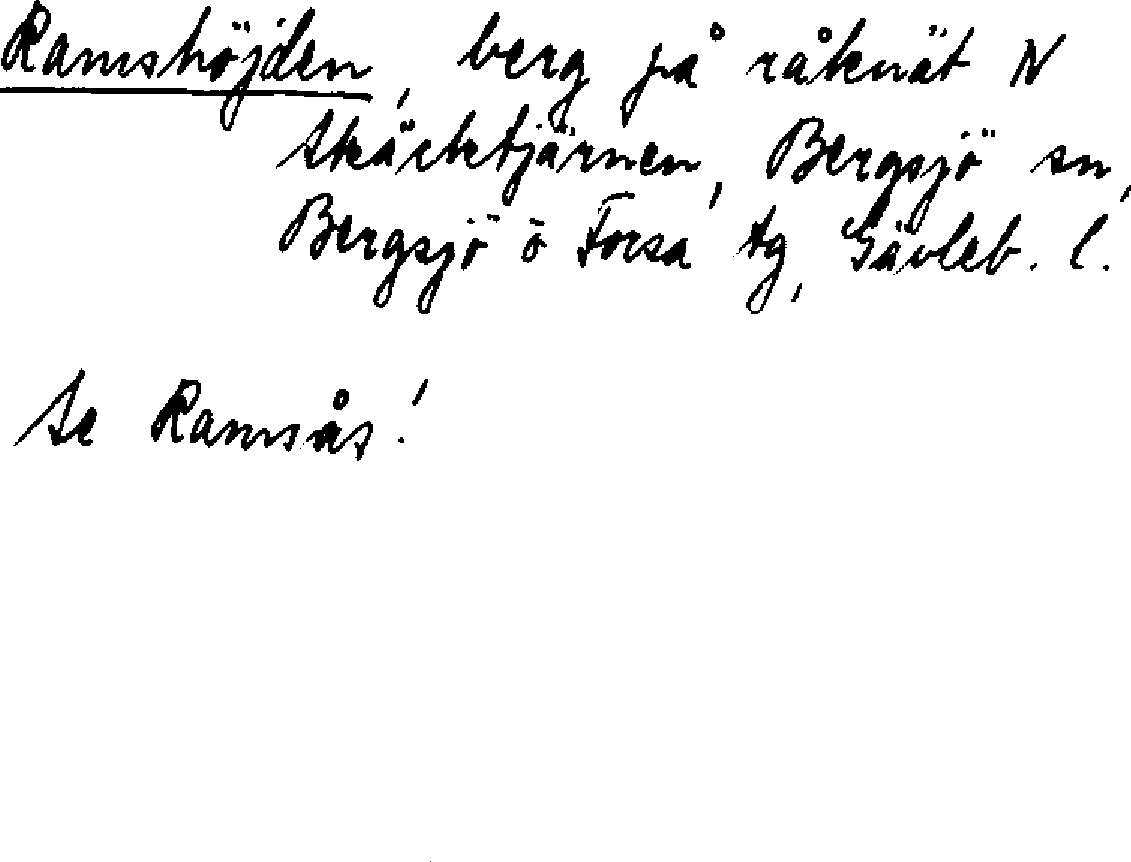 Ramshöjden, berg på råknät N
Skäcktjärnen, Bergsjö sn,
Bergsjö o Forsa tg, Gävleb. l.
Se Ramsås!